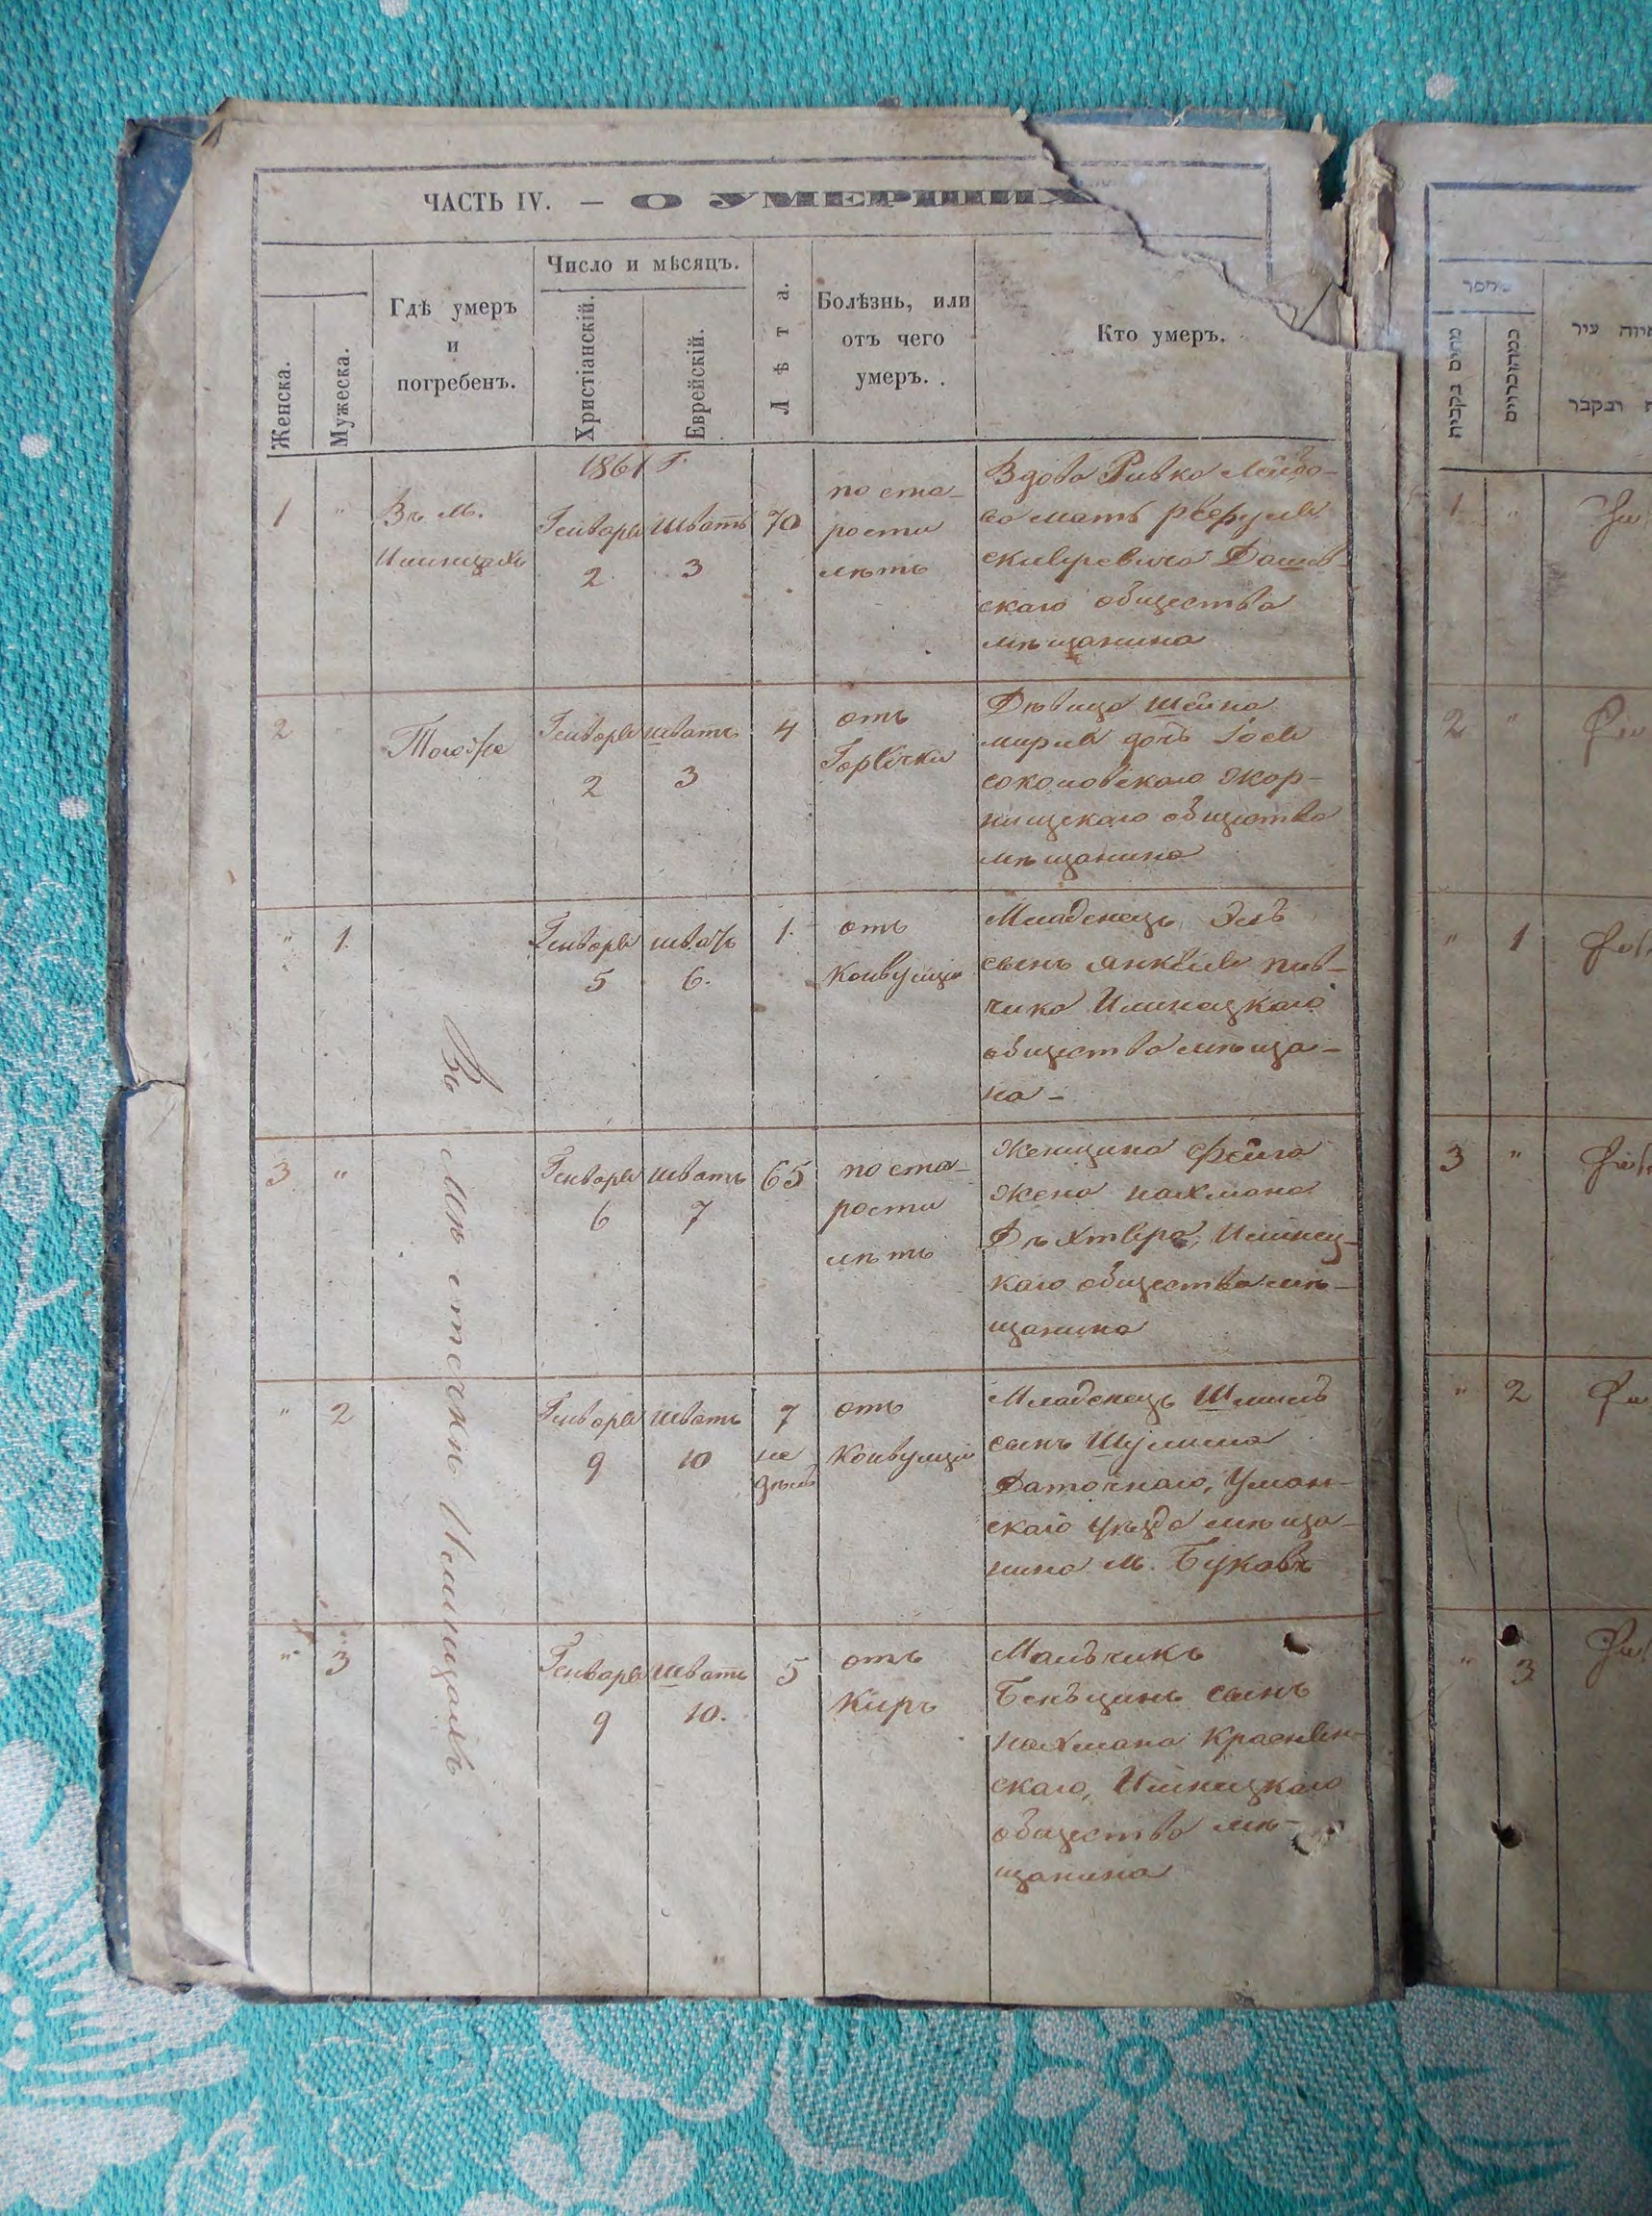 ЧАСТЬ IV. — О УМЕРШИХ
Женска.
Мужеска.
Гдѣ умеръ
и
погребенъ.
Число и мѣсяцъ.
Христіанскій.
Еврейскій.
Лѣта.
Болѣзнь, или
отъ чего
умеръ.
Кто умеръ.
1861 Г.
1 "
Въ м.
Илинцахъ
Генваря
2
Шватъ
3
70
по ста-
рости
лѣтъ
Вдова Ривка Лейбо-
ва мать
Дашев-
скаго общества
мѣщанина
2 "
Тоже
Генваря
2
шватъ
3
4
отъ
Горячки
Дѣвица Шейна
дочь
соколовскаго жор-
нищскаго общества
мѣщанина
" 1.
Генваря
5
шватъ
6.
1.
отъ
конвулціи
Младенецъ
сынъ Янкеля пив-
чика Илинецкаго
общества мѣща-
на -
3 "
Генваря
6
шватъ
7
65
по ста-
рости
лѣтъ
Женщина Фейга
жена нахмана
Дѣхтяра, Илинец-
каго общества мѣ-
щанина
" 2
Генваря
9
шватъ
10
7
не
дѣль
отъ
конвулціи
Младенецъ Шмиль
сынъ Шулима
Даточнаго, Уман-
скаго уѣзда мѣща-
нина м.
" 3
Генваря
9
шватъ
10.
5
отъ
Киръ
Мальчикъ
Бенъцинъ сынъ
нахмана Краснян-
скаго, Илинецкаго
общества мѣ-
щанина
Въ мѣстечкѣ Илинцахъ
מספר
1 "
2 "
" 1
3 "
" 2
" 3